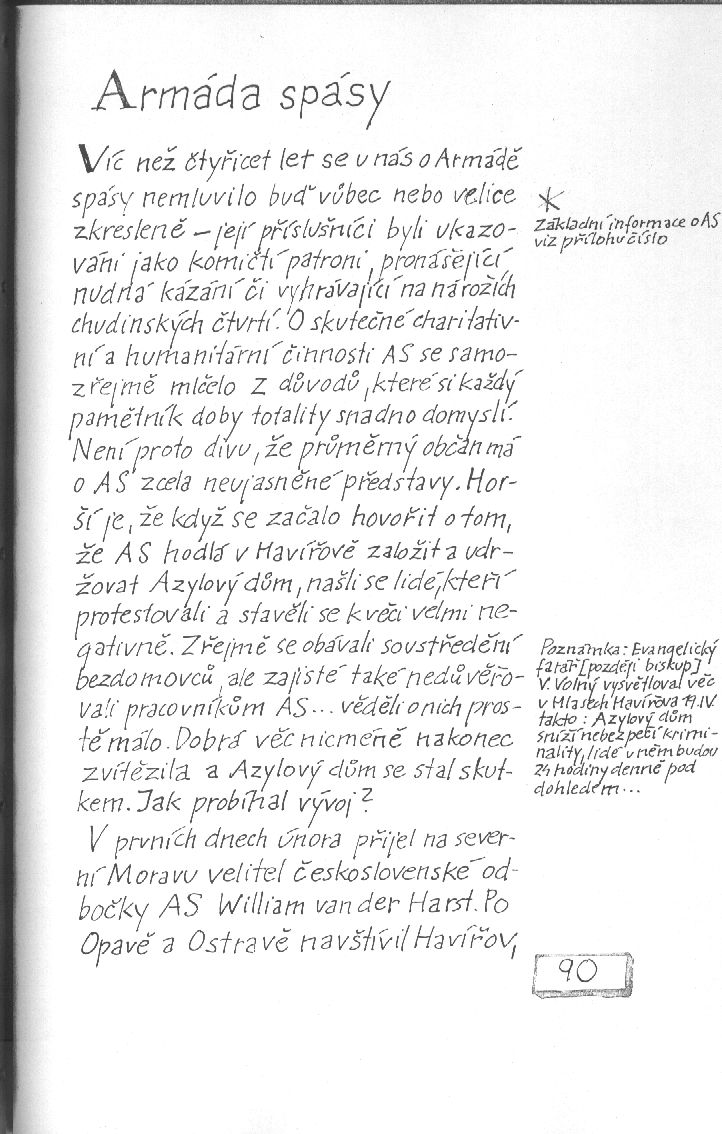 Armáda spásy
Víc než čtyřicet let se u nás o Armádě
spásy nemluvilo buď vůbec nebo velice
zkresleně – její příslušníci byli ukazo-
váni jako komičtí patroni, pronášející
nudná kázání či vyhrávající na nárožích
chudinských čtvrtí. O skutečné charitativ-
ní a humanitární činnosti AS se samo-
zřejmě mlčelo z důvodů, které si každý
pamětník doby totality snadno domyslí.
Není proto divu, že průměrný občan má
o AS zcela neujasněné představy. Hor-
ší je, že když se začalo hovořit o tom,
že AS hodlá v Havířově založit a udr-
žovat Azylový dům, našli se lidé, kteří
protestovali a stavěli se k věci velmi ne-
gativně. Zřejmě se obávali soustředění
bezdomovců, ale zajisté také nedůvěřo-
vali pracovníkům AS... věděli o nich pros-
tě málo. Dobrá věc nicméně nakonec
zvítězila a Azylový dům se stal skut-
kem. Jak probíhal vývoj?
V prvních dnech února přijel na sever-
ní Moravu velitel československé od-
bočky AS William van der Harst. Po
Opavě a Ostravě navštívil Havířov,
*
Základní informace o AS
viz přílohu číslo
Poznámka: Evangelický
farář [později biskup]
V. Volný vysvětloval věc
v Hlasech Havířova 19.IV.
takto: Azylový dům
sníží nebezpečí krimi-
nality, lidé v něm budou
24 hodiny denně pod
dohledem...
90